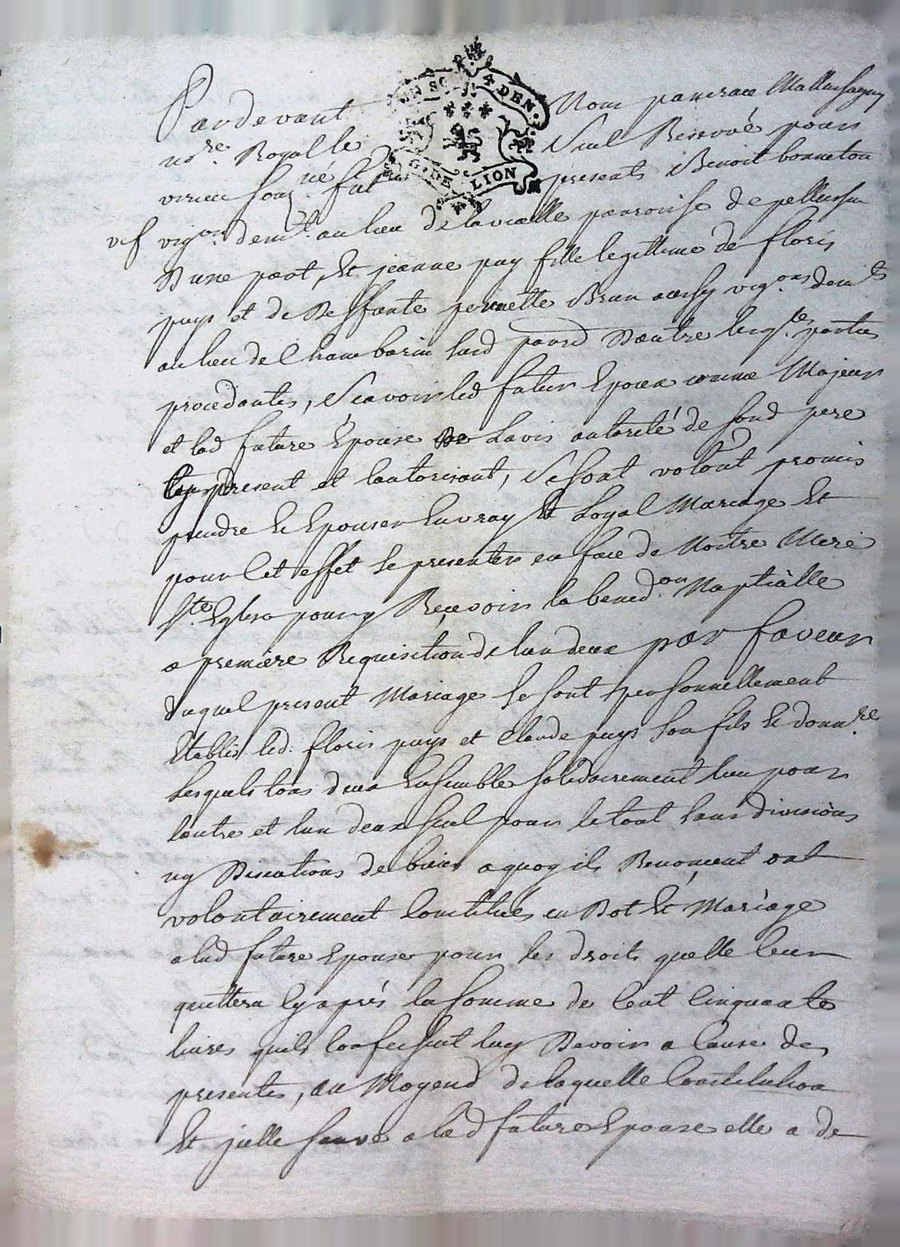 UN SOL 4 DEN.
G. DE LION
Pardevant Nous pancrace
nore. Royalle Seul Reservé pour
virieu souz. né fut présents Benoit bonneton
vef vigon. demt. au lieu de la vialle parroisse de pellussin
D'une part, Et jeanne puy fille legittime de floris
puys et de Deffante pernette Brun aussy vigons. demts.
au lieu de Chambarin susd parr. D'autre lesqles. parties
procedantes, Scavoir led futur Epoux comme Majeur
et lad future Epouse De Lavis autorité de sond pere
present et lautorisant, Se sont volont promis
prendre Et Epouser En vray Et Loyal Mariage Et
pour Cet effet se presenter en face de Nostre Mere
Ste. Eglise pour y Recevoir la benedon Nuptialle
a premiére Requisition de lun deux par faveur
duquel present Mariage se sont personnellement
Etablis led. floris puys et Claude puys son fils Et donnre.
Lesquels tous deux Ensemble solidairement lun pour
lautre et lun deux seul pour le tout sans division
ny Discutions de biens a quoy ils Renoncent ont
volontairement Constitués en Dot Et Mariage
a lad future Epouse pour les droits quelle leur
quittera cy aprés la somme de Cent Cinquante
livres quils Confessent luy Devoir a Cause des
presentes, au Moyend de laquelle Constitution
Et jcelle sauve a lad future Epouse elle a de